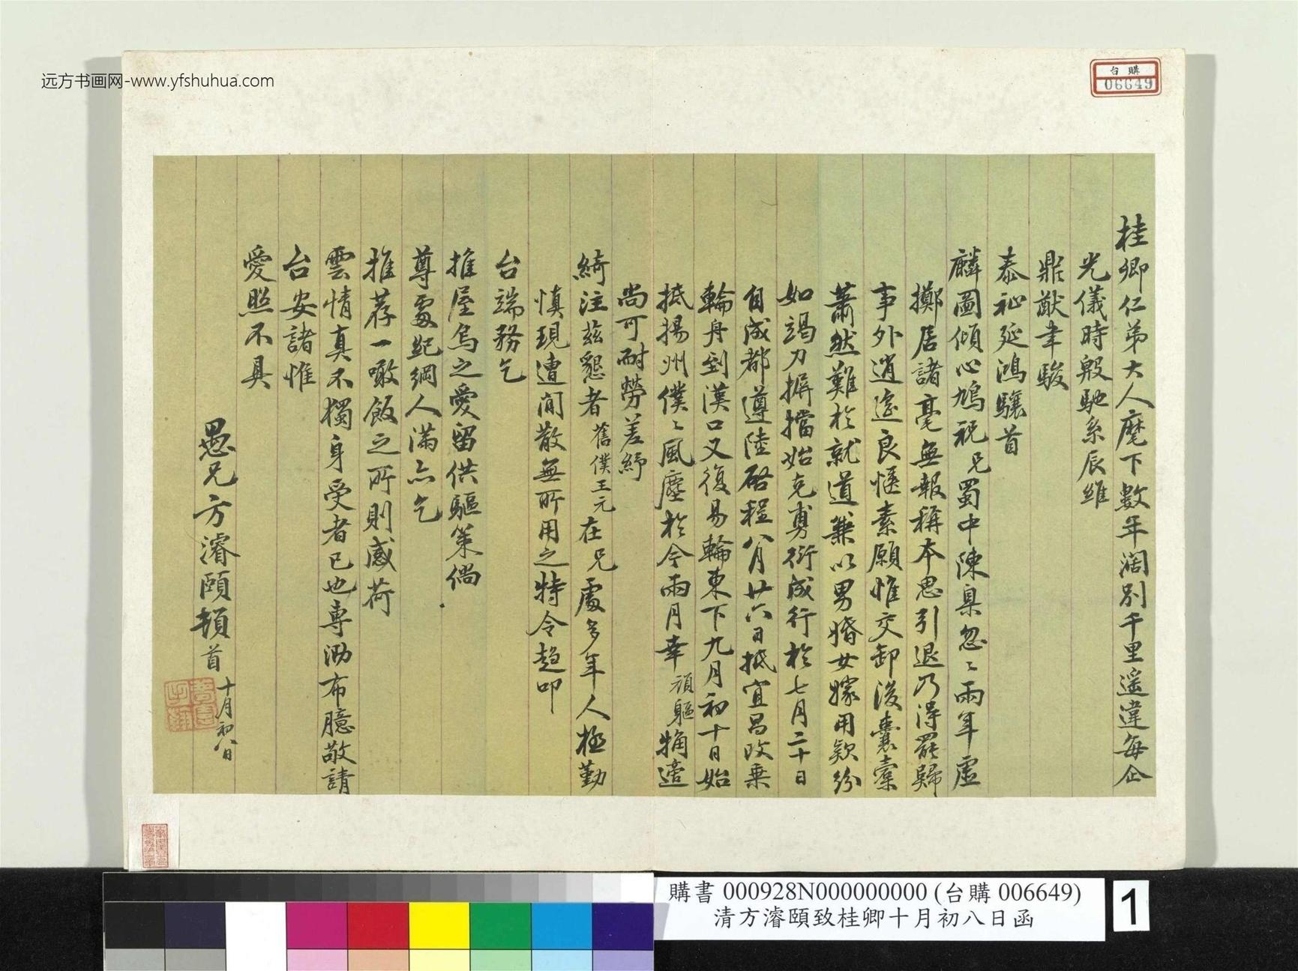 远方书画网-www.yfshuhua.com
台購
06649
桂卿仁弟大人麾下數年濶別千里遥違每企
光儀時殷馳系辰維
鼎猷聿駿
泰祉延鴻驤首
麟圖傾心鳩祝兄蜀中陳臬忽〻兩年虛
擲居諸毫無報稱本思引退乃得罷歸
事外逍遥良愜素願惟交卸後囊橐
蕭然難於就道兼以男婚女嫁用款紛
如竭力摒擋始克勇衍成行於七月二十日
自成都遵陸啓程八月廿六日抵宜昌改乗
輪舟到漢口又復易輪東下九月初十日始
抵揚州僕〻風塵於今兩月幸頑軀
尚可耐勞差紓
綺注兹懇者舊僕王元在兄處多年人極勤
慎現遭閒散無所用之特令趨叩
台端務乞
推屋烏之愛留供驅策倘
尊處紀綱人滿亦乞
推荐一噉飯之所則感荷
雲情真不獨身受者已也專泐布臆敬請
台安諸惟
愛照不具
愚兄方濬頤頓首十月初八日
購書 000928N000000000 (台購 006649)
清方濬頤致桂卿十月初八日函
1